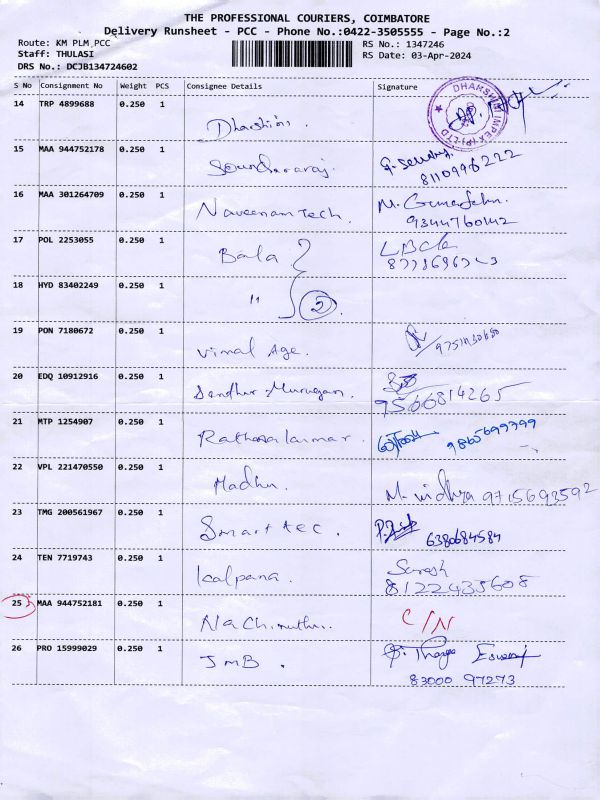 THE PROFESSIONAL COURIERS, COIMBATORE
Delivery Runsheet - PCC - Phone No.:0422-3505555 - Page No.:2
Route: KM PLM,PCC
RS No.: 1347246
Staff: THULASI
RS Date: 03-Apr-2024
DRS No.: DCJB134724602
S No Consignment No Weight PCS Consignee Details Signature
14 TRP 4899688 0.250 1 Dharshini.
DHARSHINI IMPEX (P) LTD
15 MAA 944752178 0.250 1 Soundararaj.
8110996222
16 MAA 301264709 0.250 1 Naveenam Tech.
9344760142
17 POL 2253055 0.250 1 Bala
18 HYD 83402249 0.250 1 " 2
19 PON 7180672 0.250 1 Vimal Age.
20 EDQ 10912916 0.250 1 Senthur Murugan.
9566814265
21 MTP 1254907 0.250 1
9865699799
22 VPL 221470550 0.250 1 Madhu.
M. Vidhya 9715693592
23 TMG 200561967 0.250 1 Smart tec.
6380684584
24 TEN 7719743 0.250 1 Kalpana.
Suresh
8122435608
25 MAA 944752181 0.250 1 Nachimuthu. C/N
26 PRO 15999029 0.250 1 JMB.
83000 97273